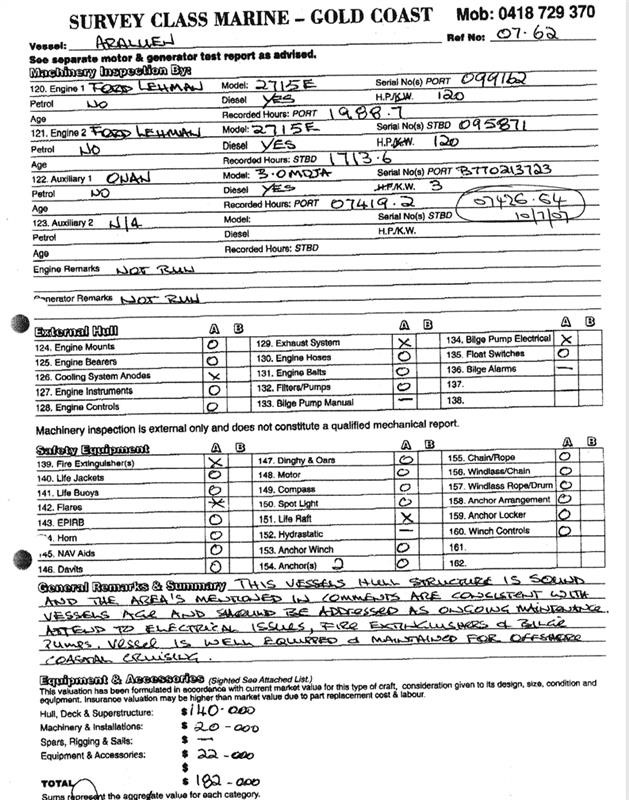 SURVEY CLASS MARINE – GOLD COAST Mob: 0418 729 370
Vessel: ARALUEN Ref No: 07-62
See separate motor & generator test report as advised.
Machinery Inspection By:
120. Engine 1 FORD LEHMAN Model: 2715E Serial No(s) PORT 099162
Petrol NO Diesel YES H.P./K.W. 120
Age Recorded Hours: PORT 1988.7
121. Engine 2 FORD LEHMAN Model: 2715E Serial No(s) STBD 095871
Petrol NO Diesel YES H.P./K.W. 120
Age Recorded Hours: STBD 1713.6
122. Auxiliary 1 ONAN Model: 3.0MDJA Serial No(s) PORT B770213723
Petrol NO Diesel YES H.P./K.W. 3
Age Recorded Hours: PORT 07419.2 07426.64
123. Auxiliary 2 N/A Model: Serial No(s) STBD 10/7/07
Petrol Diesel H.P./K.W.
Age Recorded Hours: STBD
Engine Remarks NOT RUN
Generator Remarks NOT RUN
External Hull A B A B A B
124. Engine Mounts O 129. Exhaust System X 134. Bilge Pump Electrical X
125. Engine Bearers O 130. Engine Hoses O 135. Float Switches O
126. Cooling System Anodes X 131. Engine Belts O 136. Bilge Alarms —
127. Engine Instruments O 132. Filters/Pumps O 137.
128. Engine Controls O 133. Bilge Pump Manual — 138.
Machinery inspection is external only and does not constitute a qualified mechanical report.
Safety Equipment A B A B A B
139. Fire Extinguisher(s) X 147. Dinghy & Oars O 155. Chain/Rope O
140. Life Jackets O 148. Motor O 156. Windlass/Chain O
141. Life Buoys O 149. Compass O 157. Windlass Rope/Drum O
142. Flares X 150. Spot Light O 158. Anchor Arrangement O
143. EPIRB O 151. Life Raft X 159. Anchor Locker O
4. Horn O 152. Hydrastatic — 160. Winch Controls O
145. NAV Aids O 153. Anchor Winch O 161.
146. Davits O 154. Anchor(s) 2 O 162.
General Remarks & Summary THIS VESSELS HULL STRUCTURE IS SOUND
AND THE AREA'S MENTIONED IN COMMENTS ARE CONSISTENT WITH
VESSELS AGE AND SHOULD BE ADDRESSED AS ONGOING MAINTENANCE.
ATTEND TO ELECTRICAL ISSUES, FIRE EXTINGUISHERS & BILGE
PUMPS. VESSEL IS WELL EQUIPPED & MAINTAINED FOR OFFSHORE
COASTAL CRUISING.
Equipment & Accessories (Sighted See Attached List.)
This valuation has been formulated in accordance with current market value for this type of craft, consideration given to its design, size, condition and
equipment. Insurance valuation may be higher than market value due to part replacement cost & labour.
Hull, Deck & Superstructure: $140-000
Machinery & Installations: $ 20-000
Spars, Rigging & Sails: $ —
Equipment & Accessories: $ 22-000
$
TOTAL $ 182-000
Sums represent the aggregate value for each category.